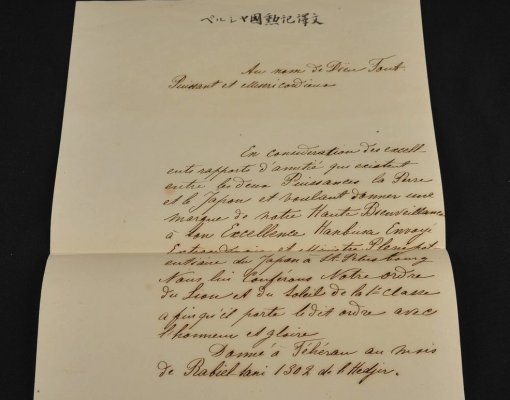 ペルシャ國勲記譯文
Au nom de Dieu Tout
Puissant et Misericordieux
En consideration des excell
ents rapports d'amitié qui existent
entre les deux Puissances la Perse
et le Japon et voulant donner une
marque de notre Haute Bienveillance
à Son Excellence Hanbusa Envoyé
Extraordinaire et Ministre Plenipot
entiaire du Japon à St. Petersbourg
Nous lui Conférons Notre ordre
du Lion et du Soleil de la 1re classe
afin qu'il porte le dit ordre avec
l'honneur et gloire
Donné à Téhéran au mois
de Rabiel sani 1302 de l'Hedjir.